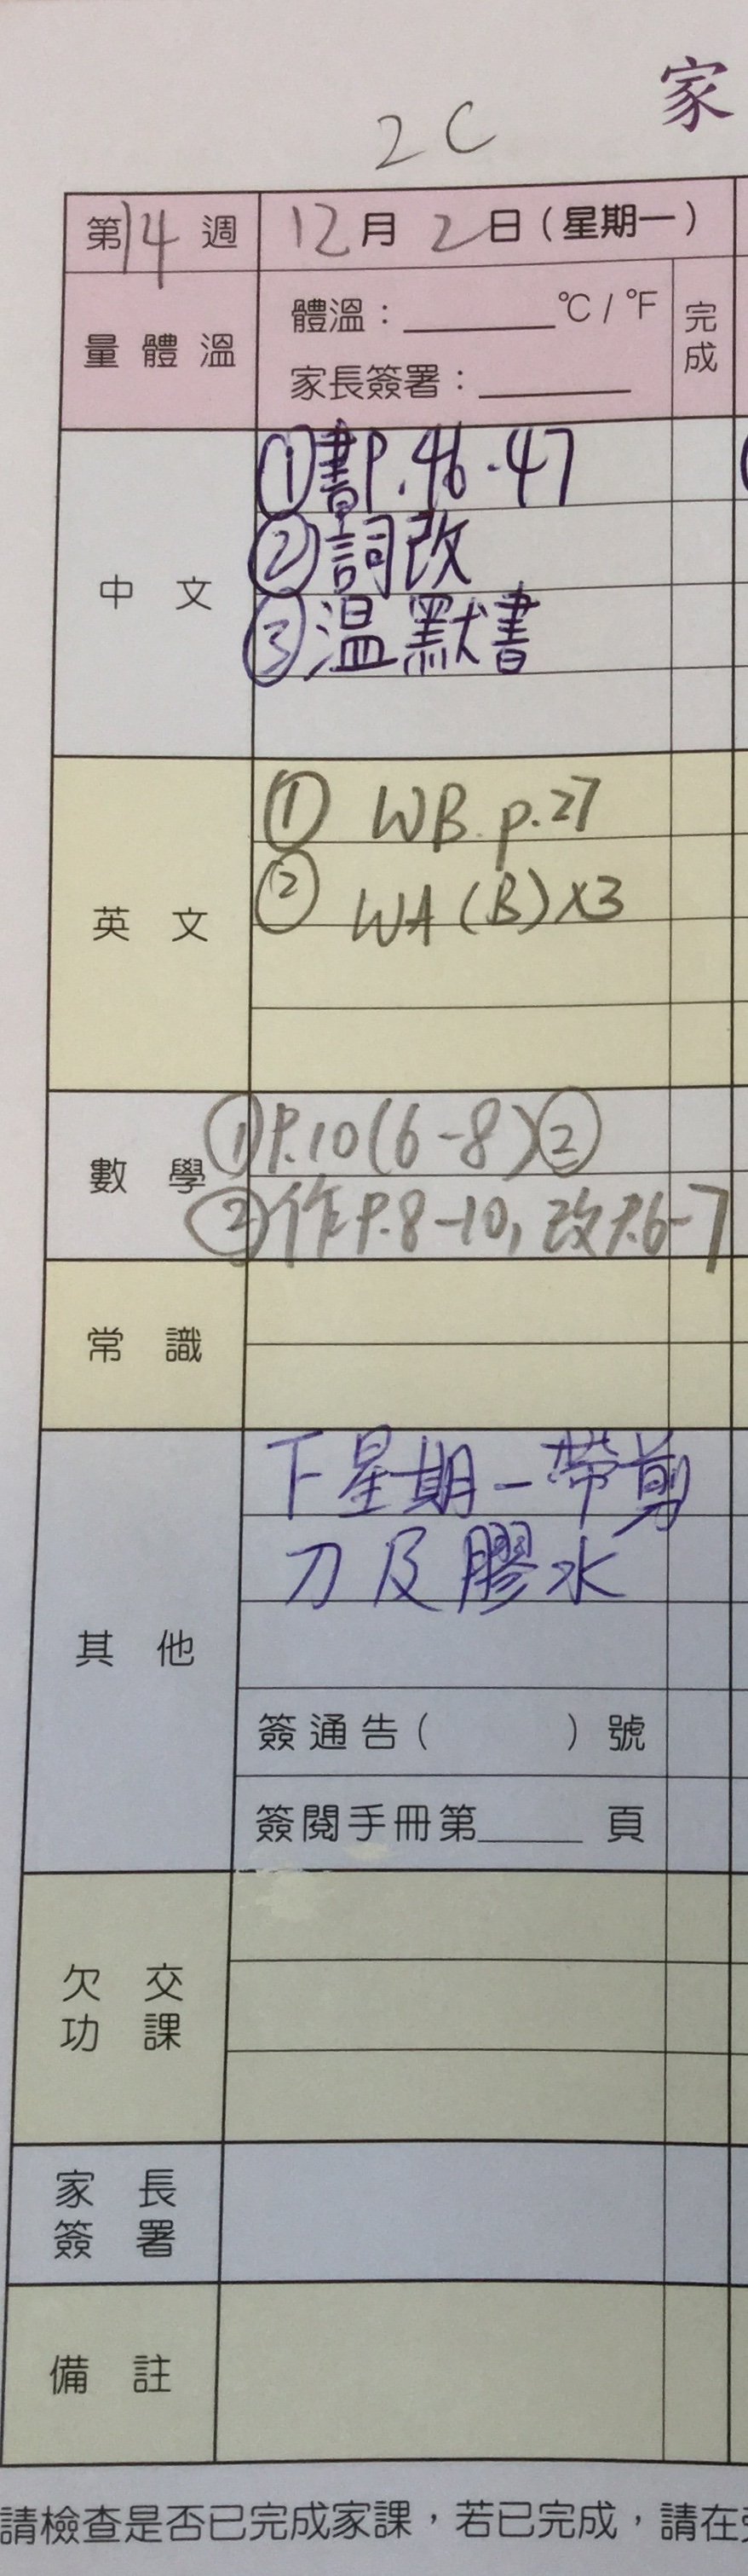 家
2C
第14週
12月2日(星期一)
量體溫
體溫：______°C / °F
家長簽署：______
完成
中文
①書P.46-47
②詞改
③溫默書
英文
① WB p.27
② WA(B)x3
數學
①P.10(6-8)②
②作P.8-10, 改P.6-7
常識
其他
下星期一帶剪
刀及膠水
簽通告(　　)號
簽閱手冊第____頁
欠交
功課
家長
簽署
備註
請檢查是否已完成家課，若已完成，請在